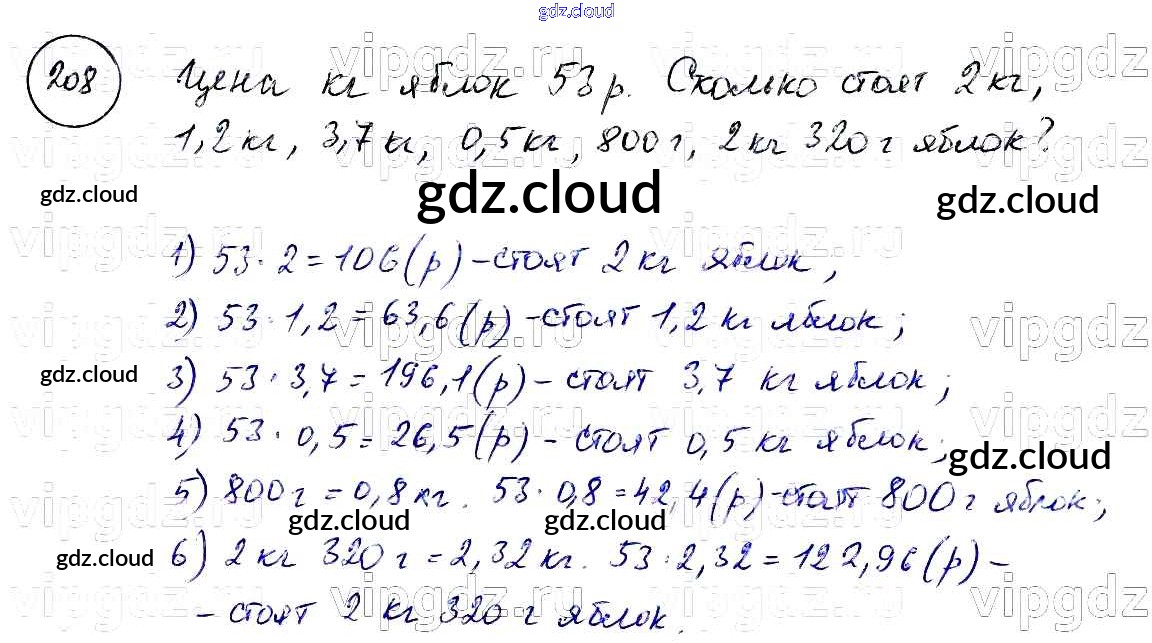 gdz.cloud
208 Цена кг яблок 53 р. Сколько стоят 2 кг,
1,2 кг, 3,7 кг, 0,5 кг, 800 г, 2 кг 320 г яблок?
gdz.cloud gdz.cloud gdz.cloud
1) 53 · 2 = 106 (р) – стоят 2 кг яблок,
2) 53 · 1,2 = 63,6 (р) – стоят 1,2 кг яблок;
3) 53 · 3,7 = 196,1 (р) – стоят 3,7 кг яблок;
gdz.cloud
4) 53 · 0,5 = 26,5 (р) – стоят 0,5 кг яблок;
gdz.cloud
5) 800 г = 0,8 кг. 53 · 0,8 = 42,4 (р) – стоят 800 г яблок;
gdz.cloud gdz.cloud
6) 2 кг 320 г = 2,32 кг. 53 · 2,32 = 122,96 (р) –
gdz.cloud
– стоят 2 кг 320 г яблок.
vipgdz.ru vipgdz.ru vipgdz.ru vipgdz